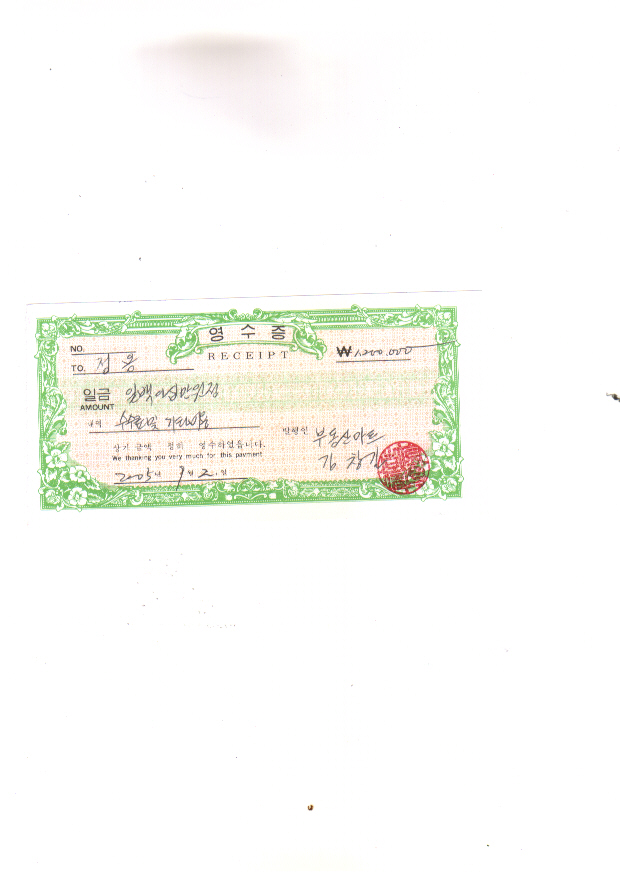 영 수 증
RECEIPT
NO.
TO. 정 용
₩ 1,200,000
일금 일백이십만원정
AMOUNT
내역 수수료 및 기타비용
상기 금액 정히 영수하였읍니다.
We thanking you very much for this payment
2005년 9월 2일
발행인 부동산마트
김 창길